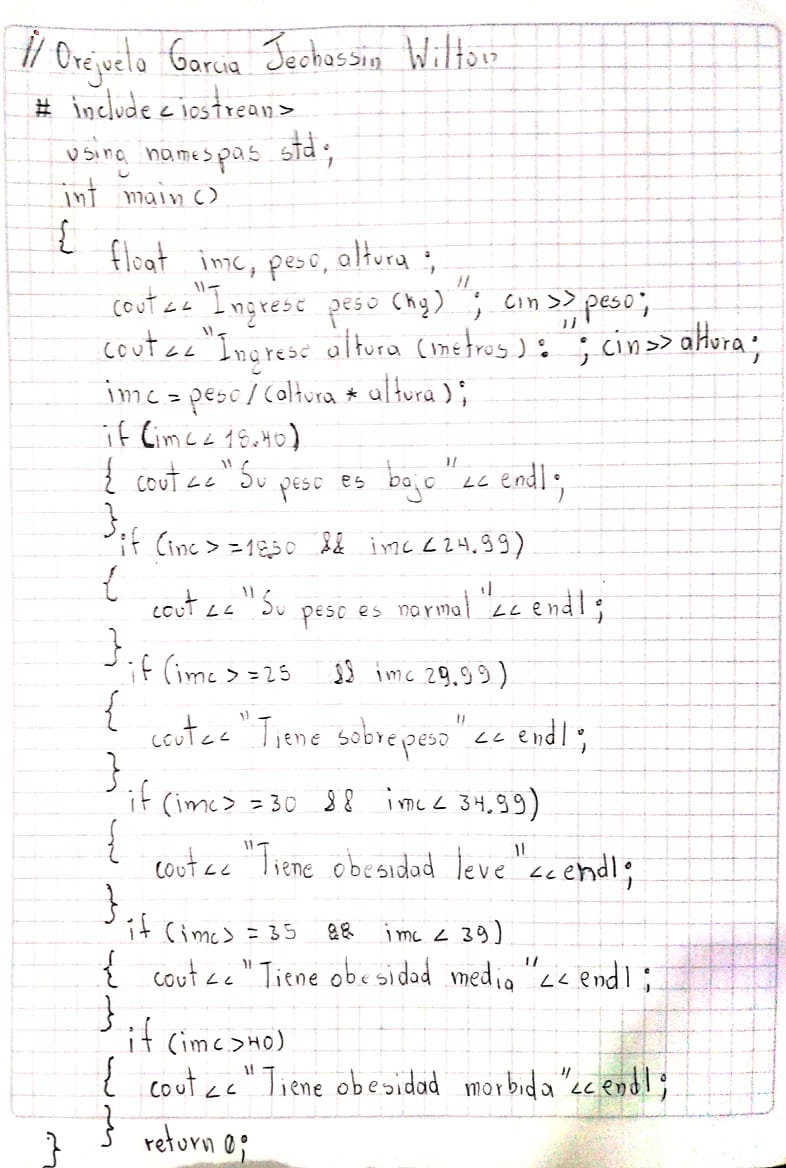 // Orejuela Garcia Jeohassin Wilton
# include <iostrean>
using namespas std;
int main ()
{
float imc, peso, altura;
cout << "Ingrese peso (kg) "; cin >> peso;
cout << "Ingrese altura (metros) : "; cin >> altura;
imc = peso / (altura * altura);
if (imc < 18.40)
{ cout << "Su peso es bajo" << endl;
}
if (inc > = 18.50 && imc < 24.99)
{
cout << "Su peso es narmal" << endl;
}
if (imc > = 25 && imc 29.99)
{
cout << "Tiene sobrepeso" << endl;
}
if (imc > = 30 && imc < 34.99)
{
cout << "Tiene obesidad leve" << endl;
}
if (imc > = 35 && imc < 39)
{ cout << "Tiene obesidad media" << endl;
}
if (imc > 40)
{ cout << "Tiene obesidad morbida" << endl;
} return 0;
}